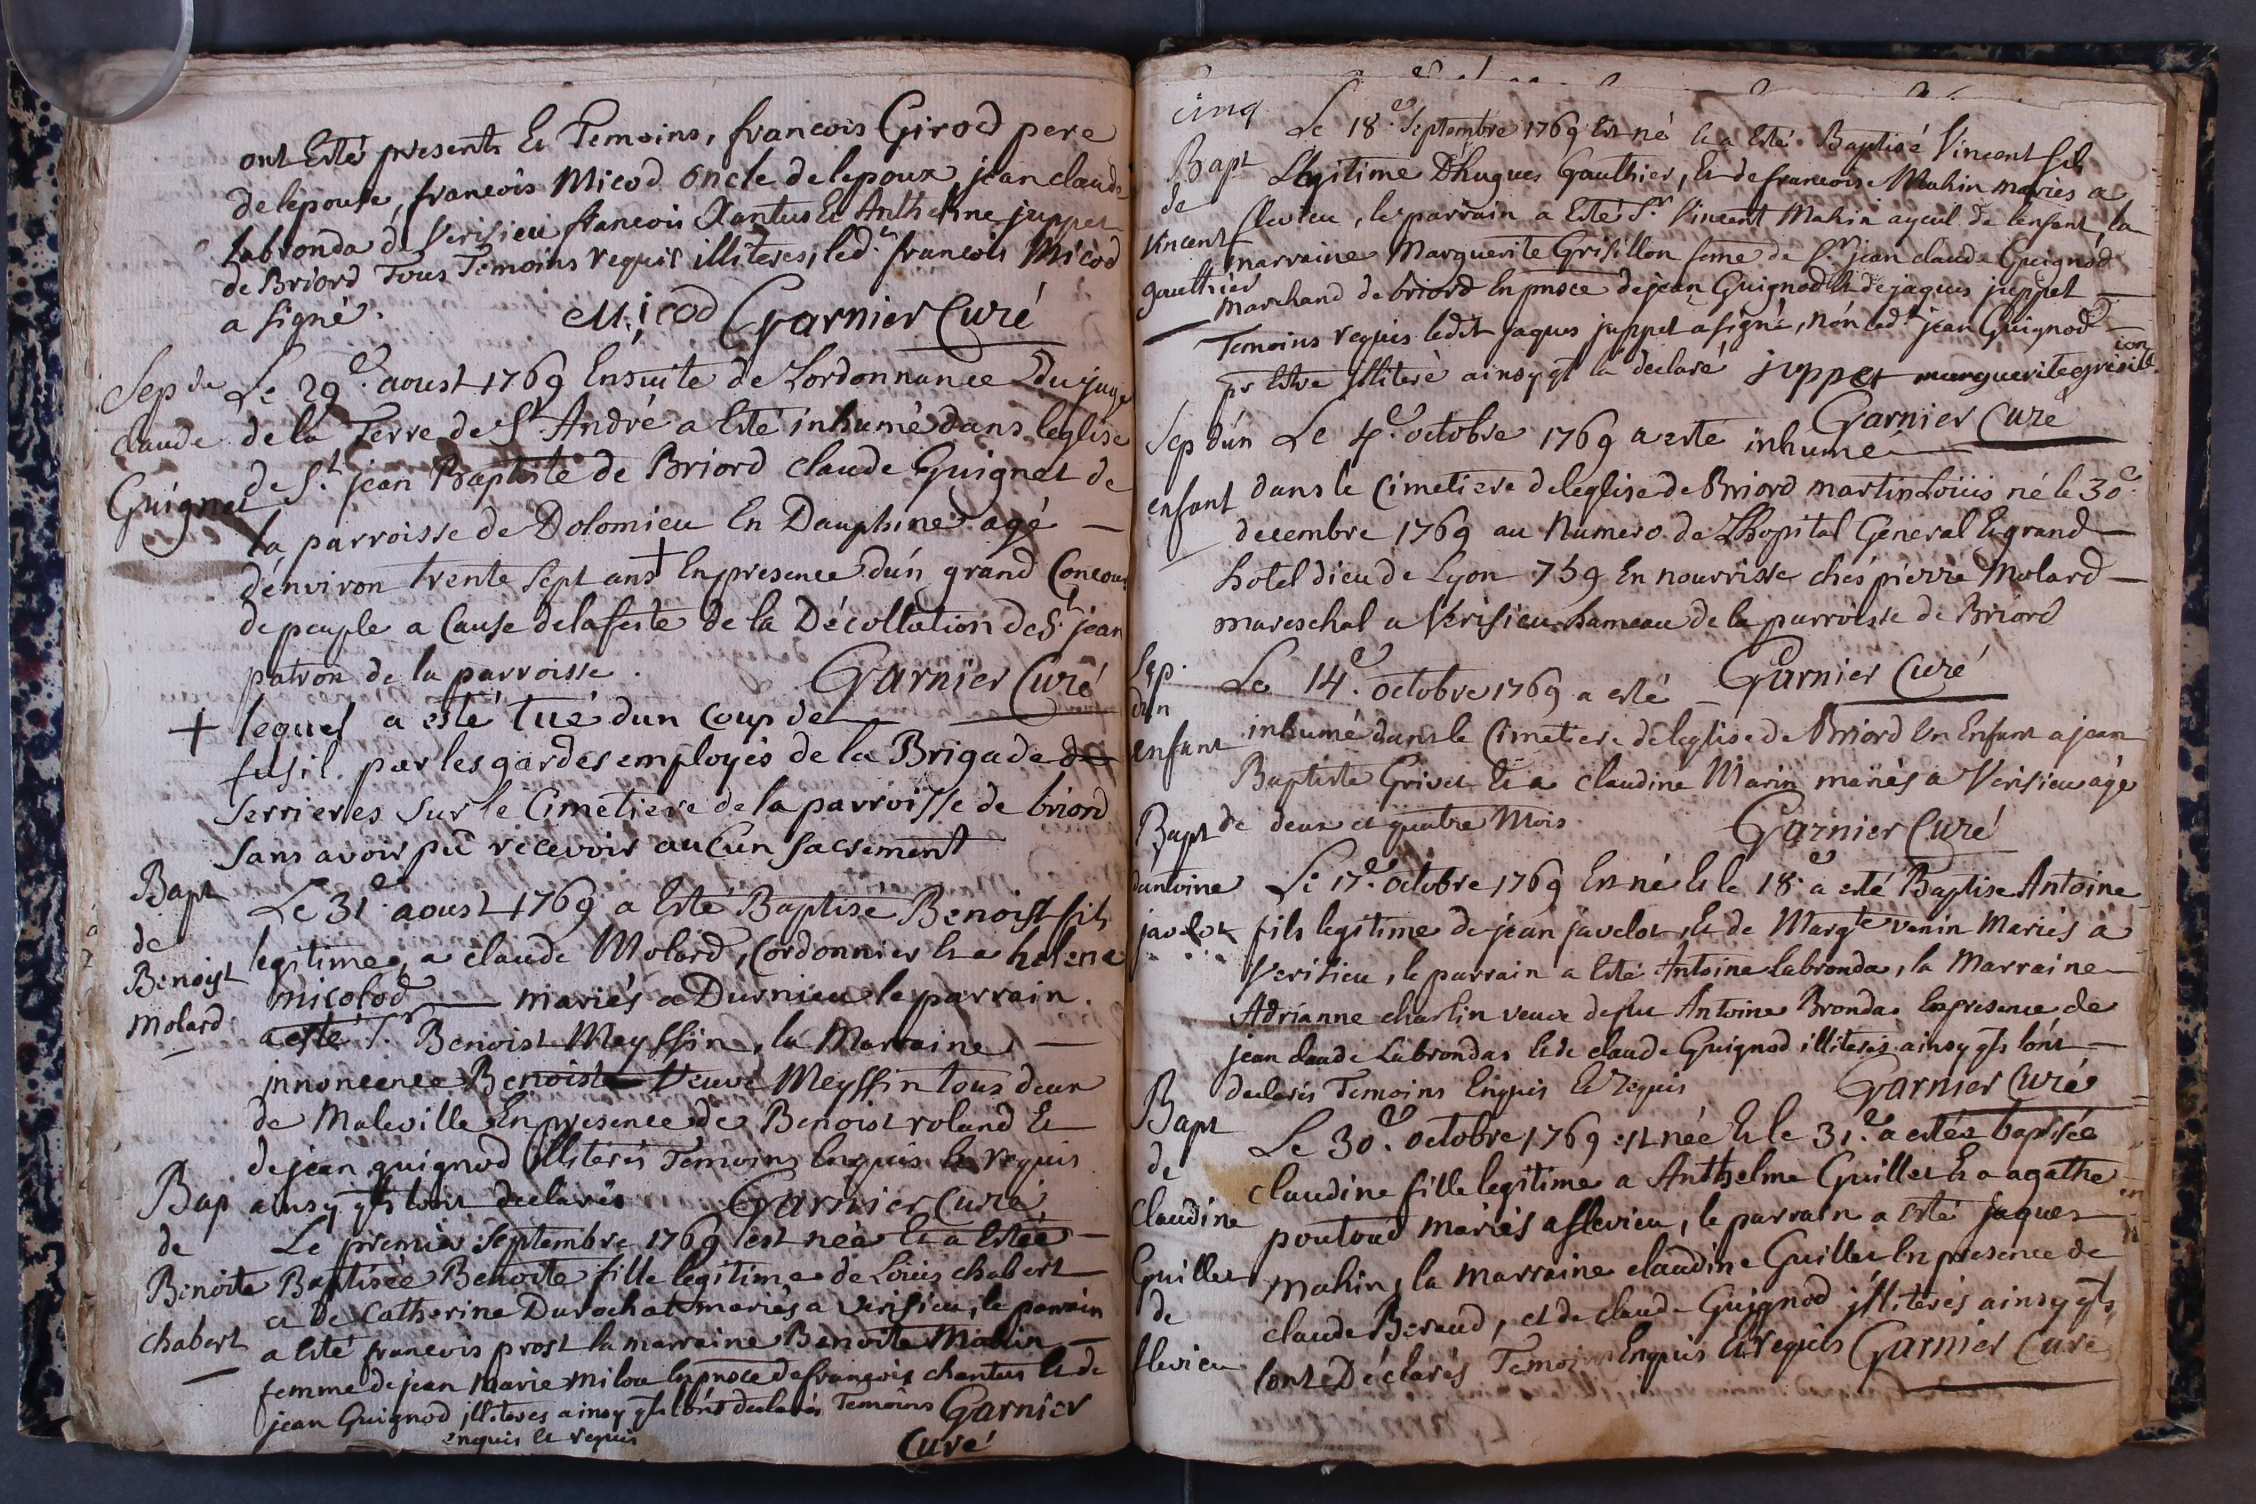 ont Esté presents Et Temoins, francois Girod pere
de lepouse, francois Micod oncle de lepoux jean claude
Labronda de Verisieu francois Xantus Et Anthelme juppet
de Briord Tous Temoins requis illiteres, led.t francois Micod
a signé.
Micod Garnier Curé
Sep de
claude
Guignet
Le 29.e aoust 1769 Ensuite de Lordonnance Du juge
de la Terre de St André a Esté inhumé dans leglise
de St. jean Baptiste de Briord claude Guignet de
la parroisse de Dolomieu En Dauphiné agé —
d'environ trente sept ans + En presence d'un grand Concour
de peuple a Cause de la feste de la Décollation de St. jean
patron de la parroisse.
Garnier Curé
+ lequel a esté tué dun coup de —
fusil par les gardes employés de la Brigade de
Serrieres sur le Cimetiere de la parroisse de briord
sans avoir pû recevoir auCun sacrement
Bapt
de
Benoist
Molard
Le 31.e aoust 1769 a Esté Baptisé Benoist fils
legitime, a claude Molard, Cordonnier Et a helene
micolod — mariés a Durnieu le parrain.
a esté Sr. Benoist Meyssin, la Marraine —
jnnoncence Benoiste Veuve Meyssin tous deux
de Maleville En presence de Benoist roland Et
de jean guignod illiterés Temoins Enquis Et requis
ainsy qls lont declarés Garnier Curé
Bap
de
Benoite
chabert
Le premier Septembre 1769 est née Et a Estée —
Baptisée Benoite fille legitime de Loüis chabert —
et de Catherine Durochat mariés a Verisieu, le parrain
a Esté francois prost la marraine Benoite Mahin —
femme de jean Marie milou En pnsce de françois chantus Et de
jean Guignod jlliteres ainsy qls lont declarés Temoins Garnier
enquis et requis
Curé
cinq
Bapt
de
Vincent
gauthier
Le 18.e Septembre 1769 Est né Et a Esté Baptisé Vincent fils
Legitime D'hugues Gauthier, Et de francoise Mahin mariés a
flevieu, le parrain a Esté Sr. Vincent Mahin ayeul de lenfant, la
marraine Marguerite Grisillon fame de Sr. jean claude Guignod
Marchand de briord En pnsce de jean Guignod Et de jaques juppet —
Temoins requis ledit jaques juppet a signé, Nón led.t jean Guignod —
pr Estre jlliteré ainsy ql la declaré juppet marguerite grésill
ion
Garnier Curé
Sep d'un
enfant
Le 4.e octobre 1769 a esté inhumé —
dans le Cimetiere de leglise de Briord martin Loüis né le 30.e
decembre 1769 au Numero de Lhopital General Et grand —
hotel dieu de Lyon 759 En nourrisse chés pierre Molard —
mareschal a Verisieu hameau de la parroisse de Briord
Garnier Curé
Sep.
d'un
enfant
Le 14.e octobre 1769 a esté —
inhumé dans le Cimetiere de leglise de Briord Un Enfant a jean
Baptiste Grivet Et a claudine Marin mariés a Verisieu agé
de deux et quatre Mois.
Garnier Curé
Bapt
dantoine
javelot
Le 17.e octobre 1769 Est né Et le 18.e a esté Baptisé Antoine
fils legitime de jean javelot, Et de Margte venin Mariés à
Verisieu, le parrain a Esté Antoine labronda, la Marraine —
Adrianne charlin veuve de feu Antoine Bronda En presence de
jean claude Labrondas Et de claude Guignod illiterés ainsy qls lónt —
declarés Temoins Enquis Et requis Garnier Curé
Bapt
de
Claudine
Guillet
de
flevieu
Le 30.e octobre 1769 est née Et le 31.e a estée baptisée
claudine fille legitime a Anthelme Guillet Et a agathe
poutoud mariés a flevieu, le parrain a esté jaques —
Mahin, la Marraine claudine Guillet En presence de
claude Beraud, et de claude Guignod jlliterés ainsy qls
lont Déclarés Temoins Enquis Et requis Garnier Curé